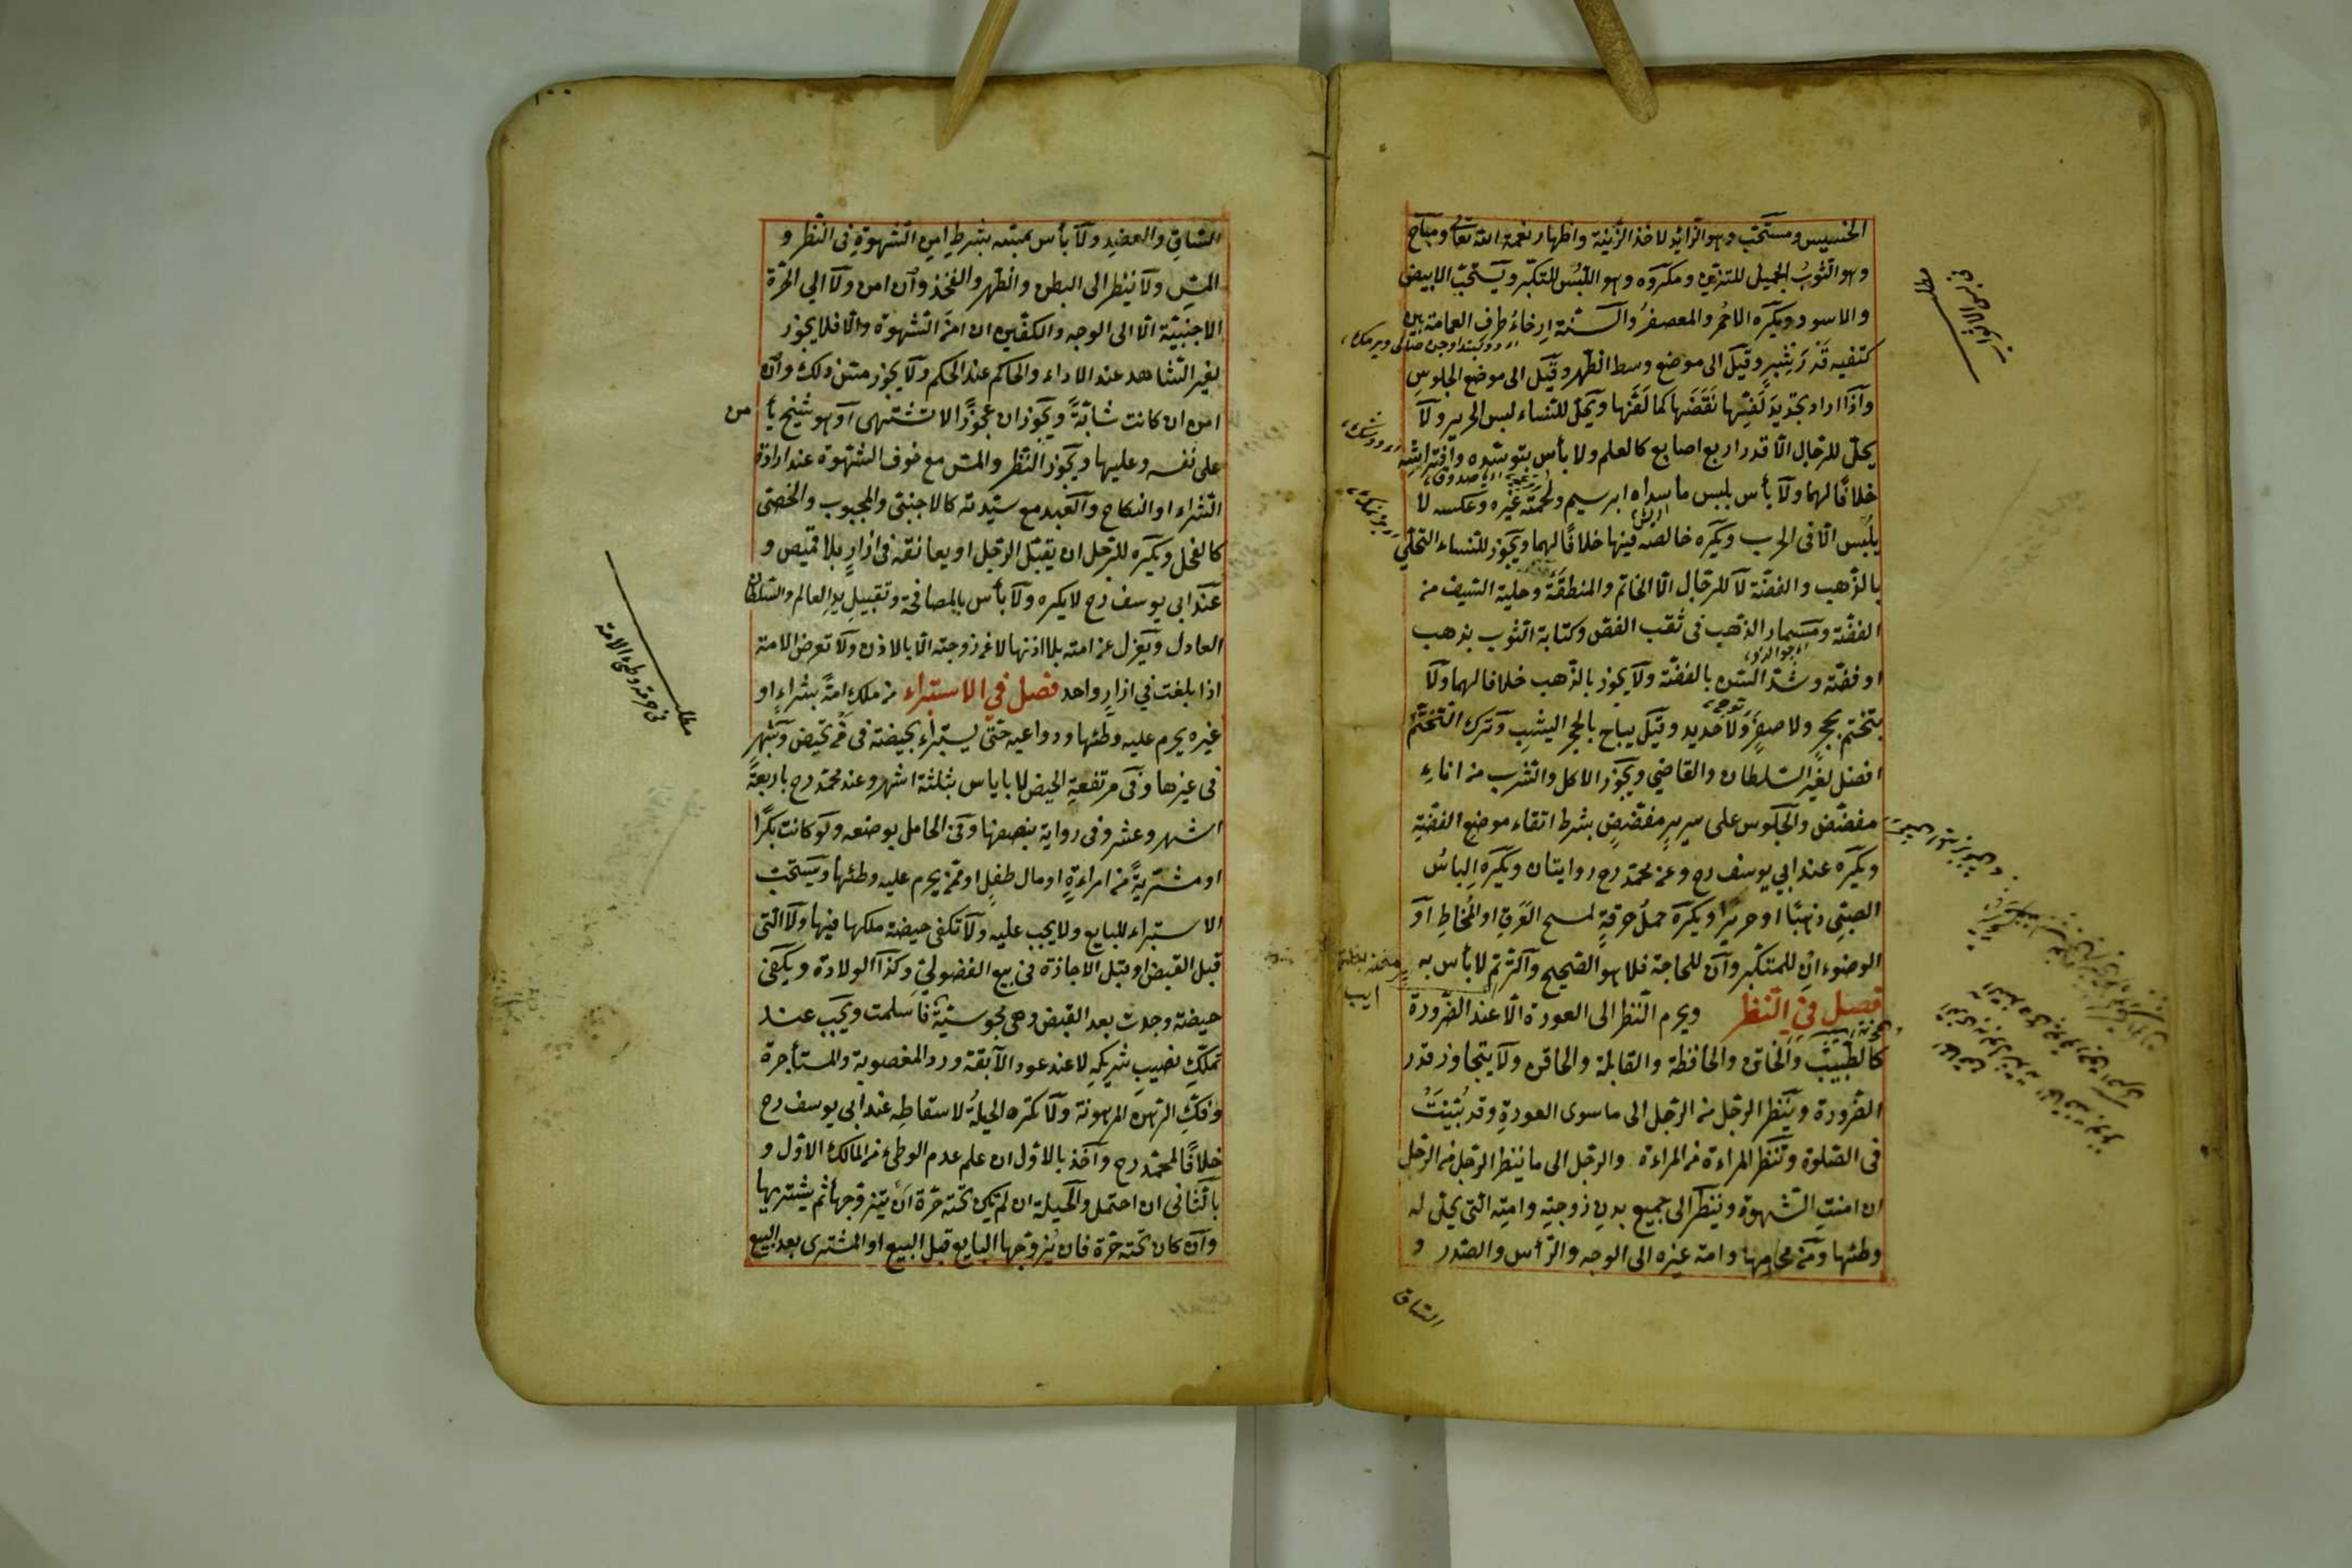 الخسيس ومستحبّ وهو الزّايد لاخذ الزّينة واظهار نعمة الله تعا ومباح
وهو الثّوبُ الجميل للتزيّن ومكروه وهو اللّبسُ للتكبّر ويستحبّ الابيض
والاسود ويكره الاحمر والمعصفرُ والسّنة ارخاء طرف العمامة بين
كتفيه قَدْرَ شِبرٍ وقيل الى موضع وسط الظّهر وقيل الى موضع الجلوس
واذا اراد تجديد لَفِّها نَقَضَها كما لَفَّها ويحلّ للنساء لبس الحرير ولا
يحلّ للرّجال الّا قدر اربع اصابع كالعلم ولا بأس بتوسّده وافتراشِه
خلافًا لهما ولا بأس بلبس ما سداه ابريسم ولحمته غيره وعكسه لا
يلبس الّا فى الحرب ويكره خالصه فيها خلافًا لهما ويجوز للنساء التحلّي
بالذّهب والفضّة لا للرّجال الّا الخاتم والمنطقةَ وحلية السّيف من
الفضّة ومسمار الذّهب فى ثقب الفصّ وكتابة الثّوب بذهب
او فضّة وشدّ السّن بالفضّة ولا يجوز بالذّهب خلافا لهما ولا
يتختّم بحجرٍ ولا صفرٍ ولا حديد وقيل يباح بالحجر اليشب وترك التختّم
افضل لغير السّلطان والقاضي ويجوز الاكل والشّرب من اناءِ
مفضّض والجلوس على سريرٍ مفضّضٍ بشرط اتقاء موضع الفضّةِ
ويكره عند ابي يوسف رح وعن محمّد رح روايتان ويكره الباسُ
الصبّى ذهبًا او حريرًا ويكره حمل خرقةٍ لمسح العَرَقِ او المُخاطِ او
الوضوء ان للمتكبّر وان للحاجة فلا هو الصّحيح والرّتم لا بأس به
فصل فى النّظر ويحرم النّظر الى العورة الّا عند الضّرورة
كالطّبيب والخاتن والخافظة والقابلة والحاقن ولا يتجاوز قدر
الضّرورة وينظر الرجل من الرّجل الى ما سوى العورةِ وقد بُيّنتْ
فى الصّلوة وتنظر المراءة من المراءة والرّجل الى ما ينظر الرّجل من الرّجل
ان امنت الشّهوة وينظر الى جميع بدن زوجتِه وامتِه الّتى يحلّ له
وطئها ومن محارمها وامة غيره الى الوجه والرّأس والصّدر و
السّاق
١٠٠
السّاقِ والعضدِ ولا بأس بمسّه بشرطِ امن الشّهوةِ فى النّظر و
المسّ ولا ينظر الى البطن والظّهر والفخذ وان امن ولا الى الحرّة
الاجنبيّة الّا الى الوجه والكفّين ان امنَ الشّهوة والّا فلا يجوز
لغير الشّاهد عند الاداء والحاكم عند الحكم ولا يجوز مسّ ذلك وان
امن ان كانت شابّةً ويجوز ان عجوزًا لا تشتهى او هو شيخ يأمن
على نفسه وعليها ويجوز النّظر والمسّ مع خوف الشّهوة عند ارادة
الشّراء او النكاح والعبد مع سيّدته كالاجنبّى والمجبوب والخصّى
كالفحل ويكره للرّجل ان يقبّل الرّجل او يعانقه فى ازارٍ بلا قميص و
عند ابى يوسف رح لا يكره ولا بأس بالمصافحة وتقبيلِ يدِ العالم والسّلطان
العادل ويعزل عن امته بلا اذنها لا عن زوجته الّا بالاذن ولا تعرض الامة
اذا بلغت في ازارٍ واحد فصل فى الاستبراء من ملك امةً بشراءٍ او
غيره يحرم عليه وطئها ودواعيه حتّى يستبراء بحيضة فى من تحيض وبشهرٍ
فى غيرها وفى مرتفعة الحيض لا باياس بثلثة اشهر وعند محمّد رح باربعة
اشهر وعشر وفى رواية بنصفها وفى الحامل بوضعه ولو كانت بكرًا
او مشتريةً من امراءةٍ او مال طفلٍ او ممّن يحرم عليه وطئها ويستحبّ
الاستبراء للبايع ولا يجب عليه ولا تكفى حيضة ملكها فيها ولا الّتى
قبل القبض او قبل الاجازة فى بيع الفضوليّ وكذا الولادة ويكفى
حيضة وجدت بعد القبض وهى مجوسيّة فاسلمت ويجب عند
تملّكِ نصيبِ شريكهِ لا عند عود الآبقة وردّ المغصوبة والمستأجرة
وفكّ الرّهن المرهونة ولا تكره الحيلةُ لاسقاطِه عند ابى يوسف رح
خلافًا لمحمّد رح واخذ بالاوّل ان علم عدم الوطئ من المالك الاوّل و
بالثّانى ان احتمل والحيلة ان لم يكن تحته حرّة ان يتزوّجها ثم يشتريها
وان كان تحته حرّة فان يزوّجها البايع قبل البيع او المشترى بعد البيع
مطلب
فى حرمة وطئ الامة